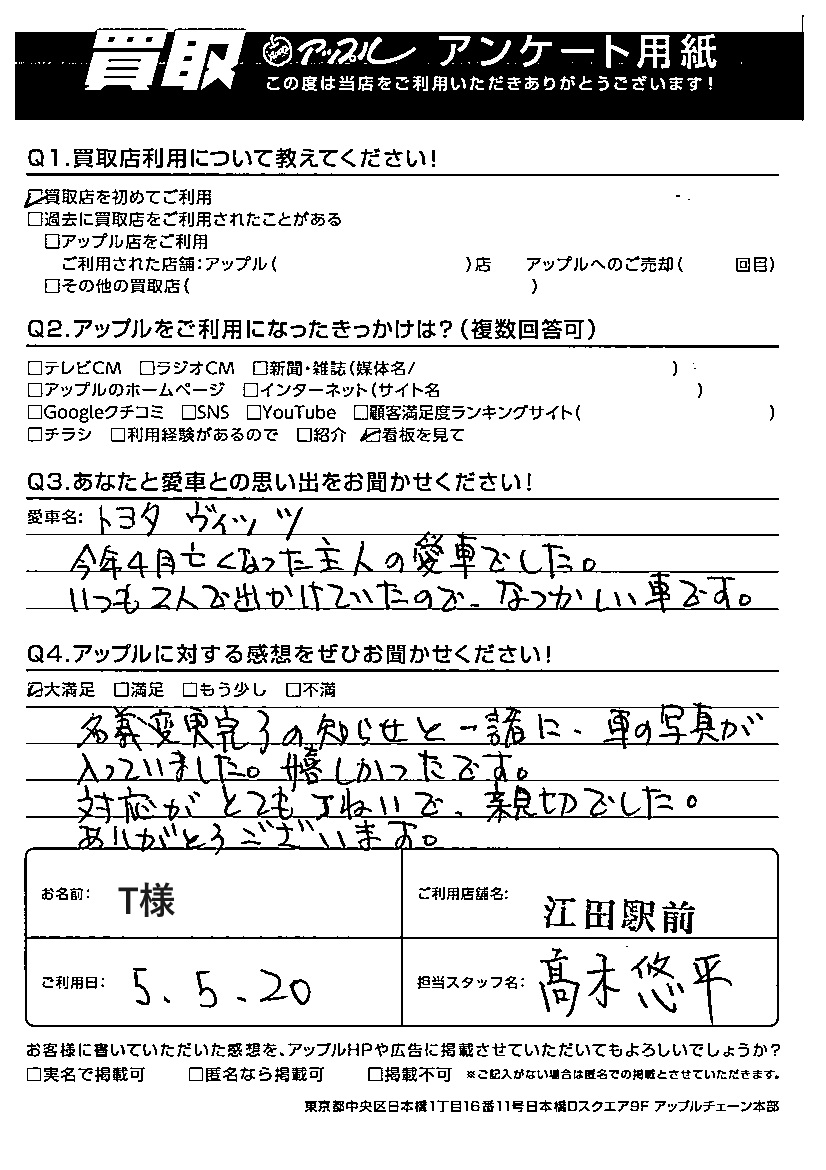 買取 アップル アンケート用紙
この度は当店をご利用いただきありがとうございます!
Q1.買取店利用について教えてください!
☑買取店を初めてご利用
□過去に買取店をご利用されたことがある
□アップル店をご利用
ご利用された店舗:アップル( )店 アップルへのご売却( 回目)
□その他の買取店( )
Q2.アップルをご利用になったきっかけは?(複数回答可)
□テレビCM □ラジオCM □新聞・雑誌(媒体名/ )
□アップルのホームページ □インターネット(サイト名 )
□Googleクチコミ □SNS □YouTube □顧客満足度ランキングサイト( )
□チラシ □利用経験があるので □紹介 ☑看板を見て
Q3.あなたと愛車との思い出をお聞かせください!
愛車名: トヨタ ヴィッツ
今年4月亡くなった主人の愛車でした。
いつも2人で出かけていたので、なつかしい車です。
Q4.アップルに対する感想をぜひお聞かせください!
☑大満足 □満足 □もう少し □不満
名義変更完了の知らせと一諸に、車の写真が
入っていました。嬉しかったです。
対応がとても丁ねいで、親切でした。
ありがとうございます。
お名前: T様 ご利用店舗名: 江田駅前
ご利用日: 5.5.20 担当スタッフ名: 髙木悠平
お客様に書いていただいた感想を、アップルHPや広告に掲載させていただいてもよろしいでしょうか?
□実名で掲載可 □匿名なら掲載可 □掲載不可 ※ご記入がない場合は匿名での掲載とさせていただきます。
東京都中央区日本橋1丁目16番11号日本橋ロスクエア9F アップルチェーン本部